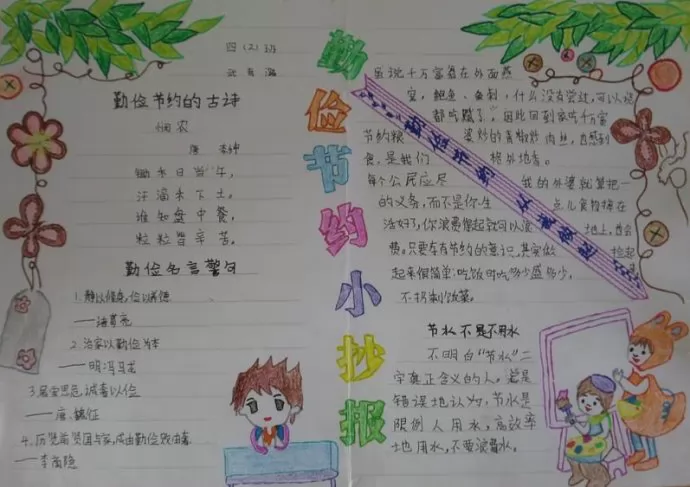 四(2)班
勤俭节约小抄报
勤俭节约的古诗
悯农
唐 李绅
锄禾日当午,
汗滴禾下土。
谁知盘中餐,
粒粒皆辛苦。
勤俭名言警句
1.静以修身,俭以养德
——诸葛亮
2.治家以勤俭为本
——明·冯梦龙
3.居安思危,诫奢以俭
——唐·魏征
4.历览前贤国与家,成由勤俭败由奢
——李商隐
虽说十万富翁在外面燕
窝,鲍鱼,鱼刺,什么没有尝过,可以说
都吃腻了。因此回到家吃外
婆炒的青椒炒肉丝,也感到
格外地香。
我的外婆就算把一
点儿食物掉在
地上,也会
捡起
勤俭节约 从我做起
节约粮
食,是我们
每个公民应尽
的义务,而不是你生
活好了,你浪费得起就可以浪
费。只要存有节约的意识,其实做
起来很简单:吃饭时吃多少盛多少,
不扔剩饭菜。
节水不是不用水
不明白“节水”二
字真正含义的人,总是
错误地认为,节水是
限倒人用水,高效率
地用水,不要浪费水。